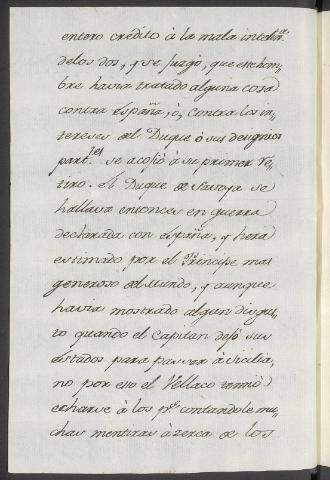 entero crédito à la mala intelig.ª
delos dos, y se juzgó, que este hom,,
bre havia tratado alguna cosa
contra España, ò, contra los in,,
tereses del Duque ò sus designios
part.les se acojió à su primer re,,
tiro. el Duque de Savoya se
hallava entonces en guerra
declarada con España, y hera
estimado por el Principe mas
generoso del Mundo, y aunque
havia mostrado algun disgus,,
to quando el Capitan dejó sus
estados para passar à Sicilia,
no por eso el Vellaco temió
echarse à los p.s contandole mu,,
chas mentiras àzerca de los